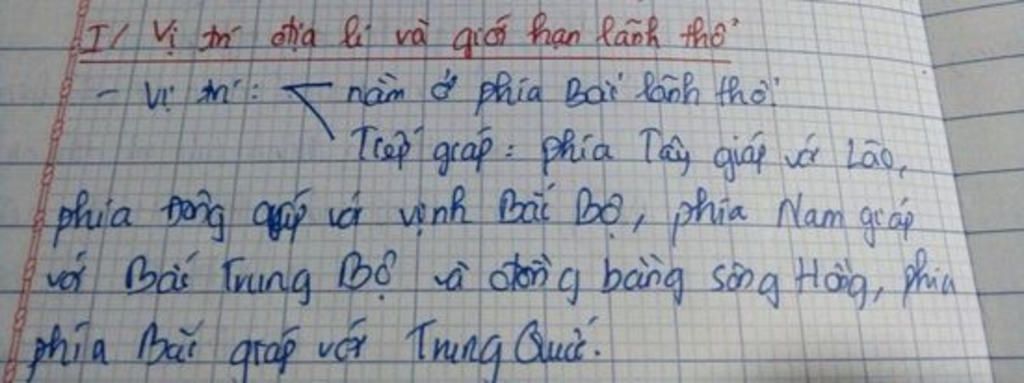 I/ Vị trí địa lí và giới hạn lãnh thổ
- Vị trí: nằm ở phía Bắc lãnh thổ
Tiếp giáp: phía Tây giáp với Lào,
phía Đông giáp với vịnh Bắc Bộ, phía Nam giáp
với Bắc Trung Bộ và đồng bằng sông Hồng, phía
phía Bắc giáp với Trung Quốc.